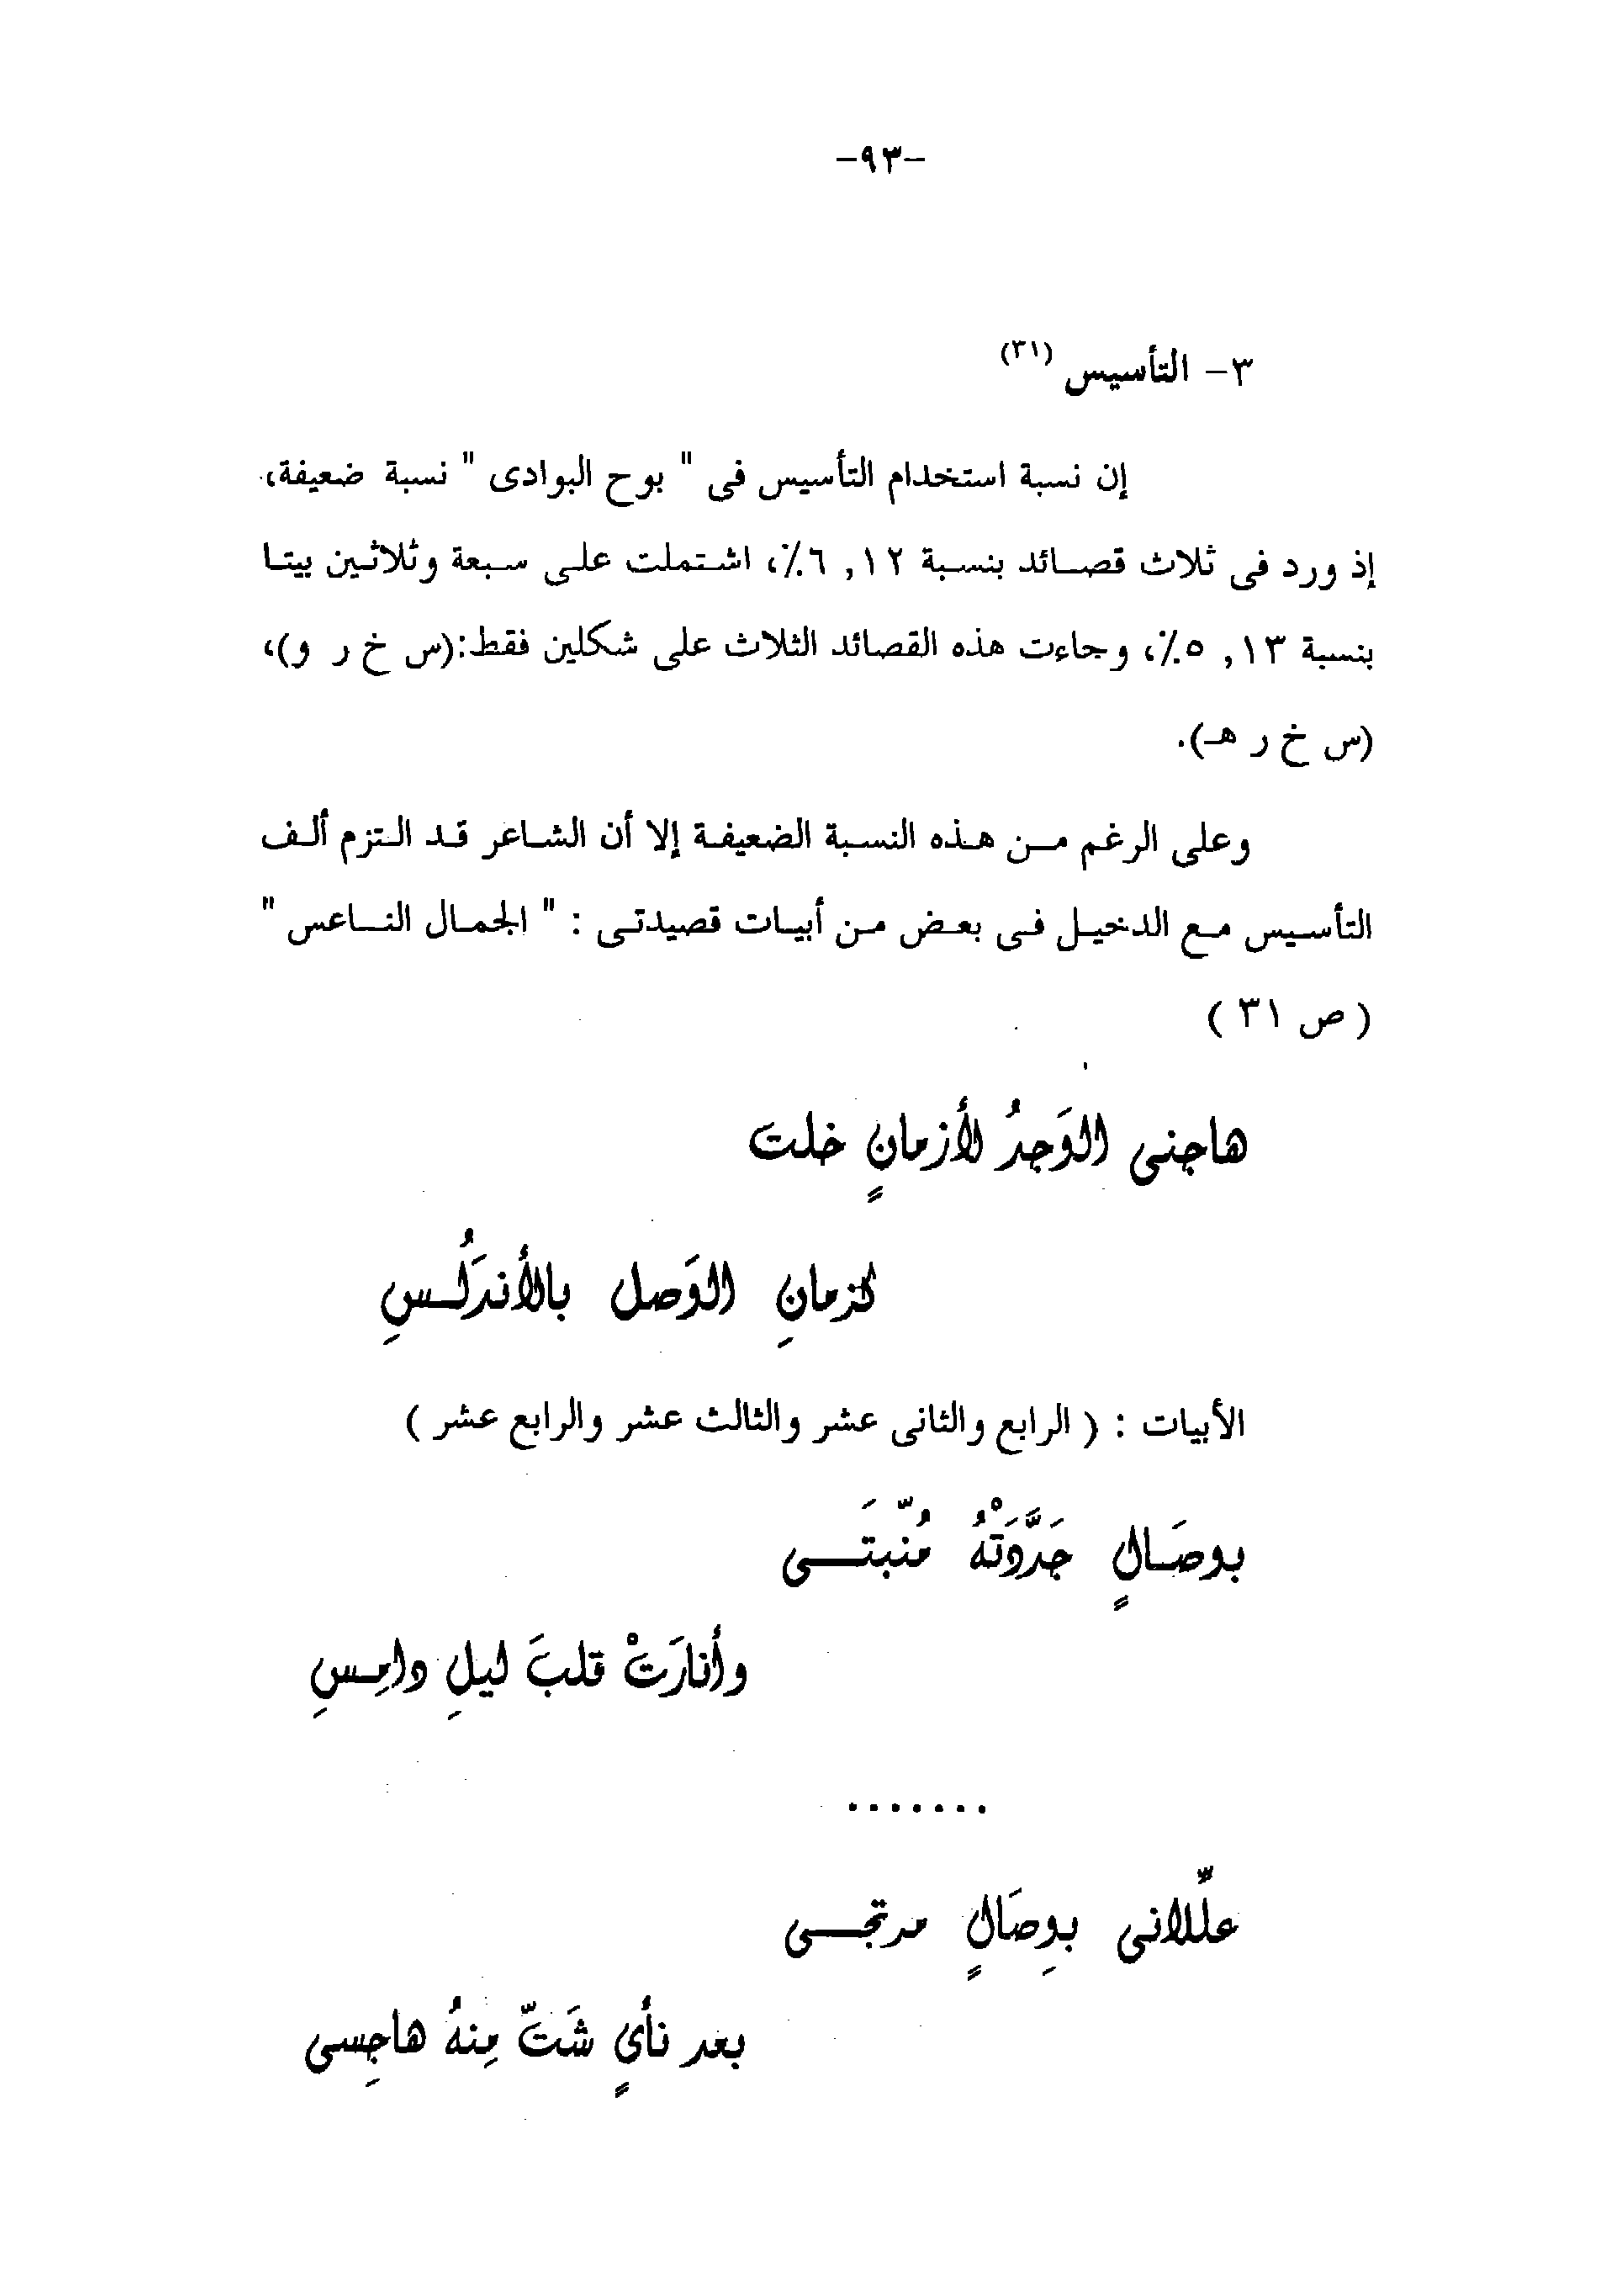 -٩٣-
٣- التأسيس (٣١)
إن نسبة استخدام التأسيس فى " بوح البوادى " نسبة ضعيفة،
إذ ورد فى ثلاث قصائد بنسبة ١٢ ,٦٪، اشتملت على سبعة وثلاثين بيتا
بنسبة ١٣ ,٥٪، وجاءت هذه القصائد الثلاث على شكلين فقط:(س خ ر و)،
(س خ ر هـ).
وعلى الرغم من هذه النسبة الضعيفة إلا أن الشاعر قد التزم ألف
التأسيس مع الدخيل فى بعض من أبيات قصيدتى : " الجمال الناعس "
( ص ٣١ )
هاجنى الوَجدُ لأزمانٍ خلت
كزمانِ الوَصل بالأندَلُسِ
الأبيات : ( الرابع والثانى عشر والثالث عشر والرابع عشر )
بوصَالٍ جَدَّدَتْهُ مُنّبتَى
وأنارَتْ قلبَ ليلِ دامِسِ
.......
علّلانى بوِصَالٍ مرتجى
بعد نأيٍ شَتّ مِنهُ هاجِسى